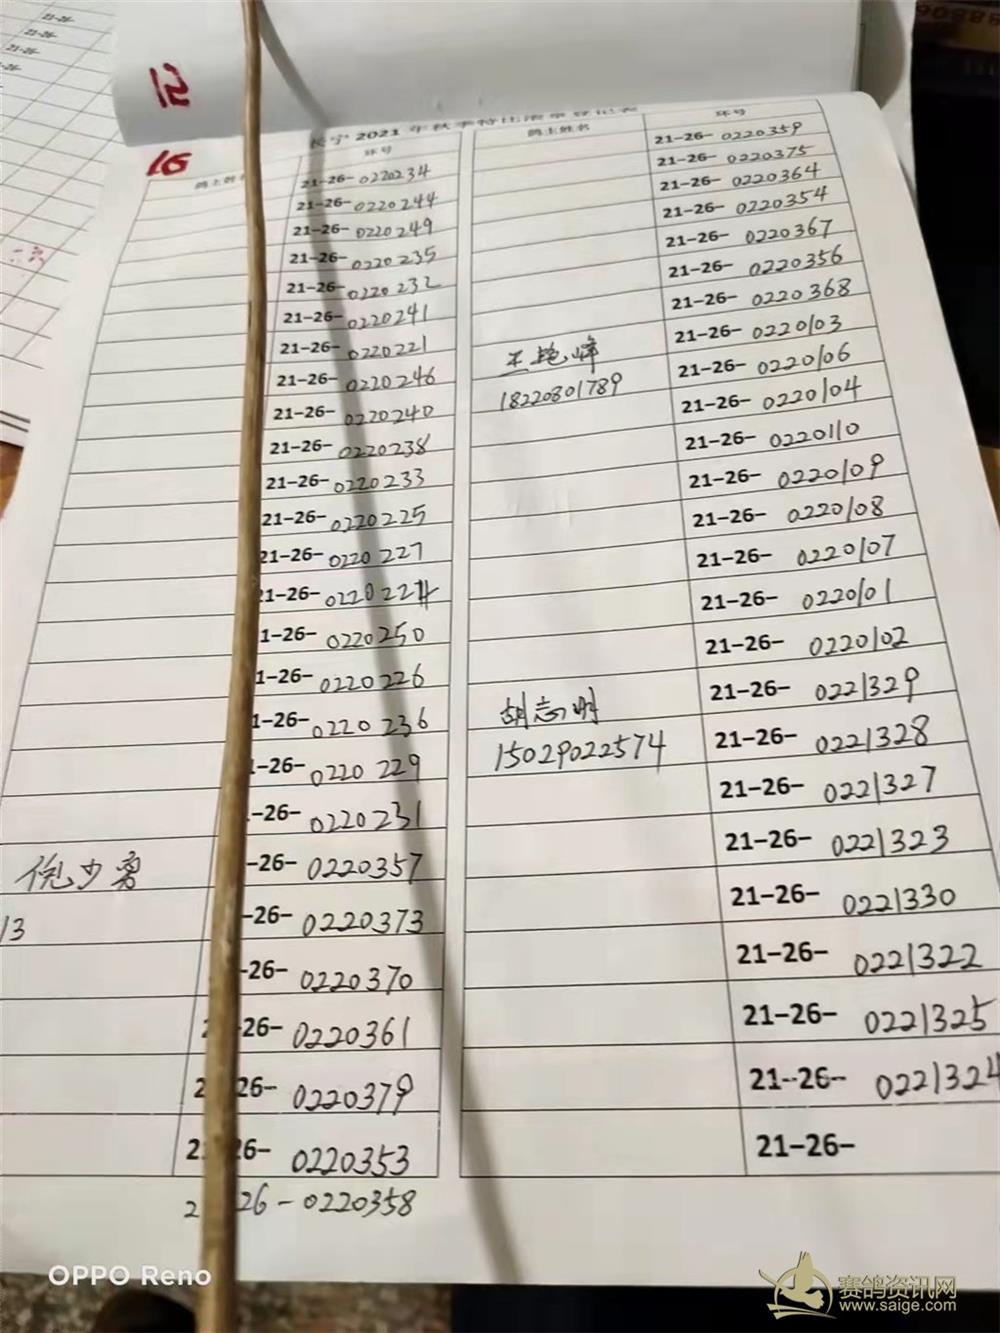 21-26-
21-26-
21-26-
21-26-
15
16
长宁2021年秋季特比浪单登记表
环号
21-26-0220234
21-26-0220244
21-26-0220249
21-26-0220235
21-26-0220232
21-26-0220241
21-26-0220221
21-26-0220246
21-26-0220240
21-26-0220238
21-26-0220233
21-26-0220225
21-26-0220227
21-26-022022
1-26-0220250
1-26-0220226
1-26-0220236
-26-0220229
-26-0220231
倪少宾
-26-0220357
13
-26-0220373
-26-0220370
-26-0220361
2 26-0220379
2 6-0220353
2 26-0220358
鸽主姓名
环号
21-26-0220359
21-26-0220375
21-26-0220364
21-26-0220354
21-26-0220367
21-26-0220356
21-26-0220368
王艳峰
21-26-0220103
18220801789
21-26-0220106
21-26-0220104
21-26-0220110
21-26-0220109
21-26-0220108
21-26-0220107
21-26-0220101
21-26-0220102
胡志明
21-26-0221329
15029022574
21-26-0221328
21-26-0221327
21-26-0221323
21-26-0221330
21-26-0221322
21-26-0221325
21-26-0221324
21-26-
OPPO Reno
赛鸽资讯网
www.saige.com